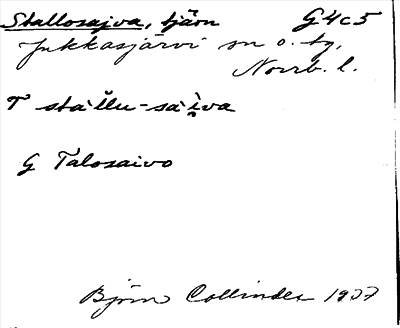 Stallosajva, tjärn G4c5
Jukkasjärvi sn o. tg,
Norrb. l.
T stállu-sái̯va
G Talosaivo
Björn Collinder 1937